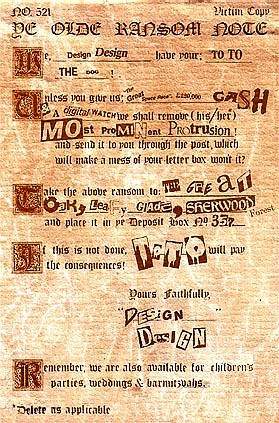 NO. 521 Victim Copy
YE OLDE RANSOM NOTE
We, Design Design have your; TO TO
THE DOG !
Unless you give us; The Great Space Race*, £250,000 CASH
& A digital WATCH we shall remove (his/her)
MOst ProMINent PrOtrusion!
and send it to you through the post, which
will make a mess of your letter box won't it?
Take the above ransom to: THE GREAT
Oak, Leafy Glade, SHERWOOD Forest
and place it in ye Deposit Box No 357
If this is not done, TOTO will pay
the consequences!
Yours Faithfully,
"DESIGN
DesIGN"
Remember, we are also available for children's
parties, weddings & barmitzvahs.
*Delete as applicable